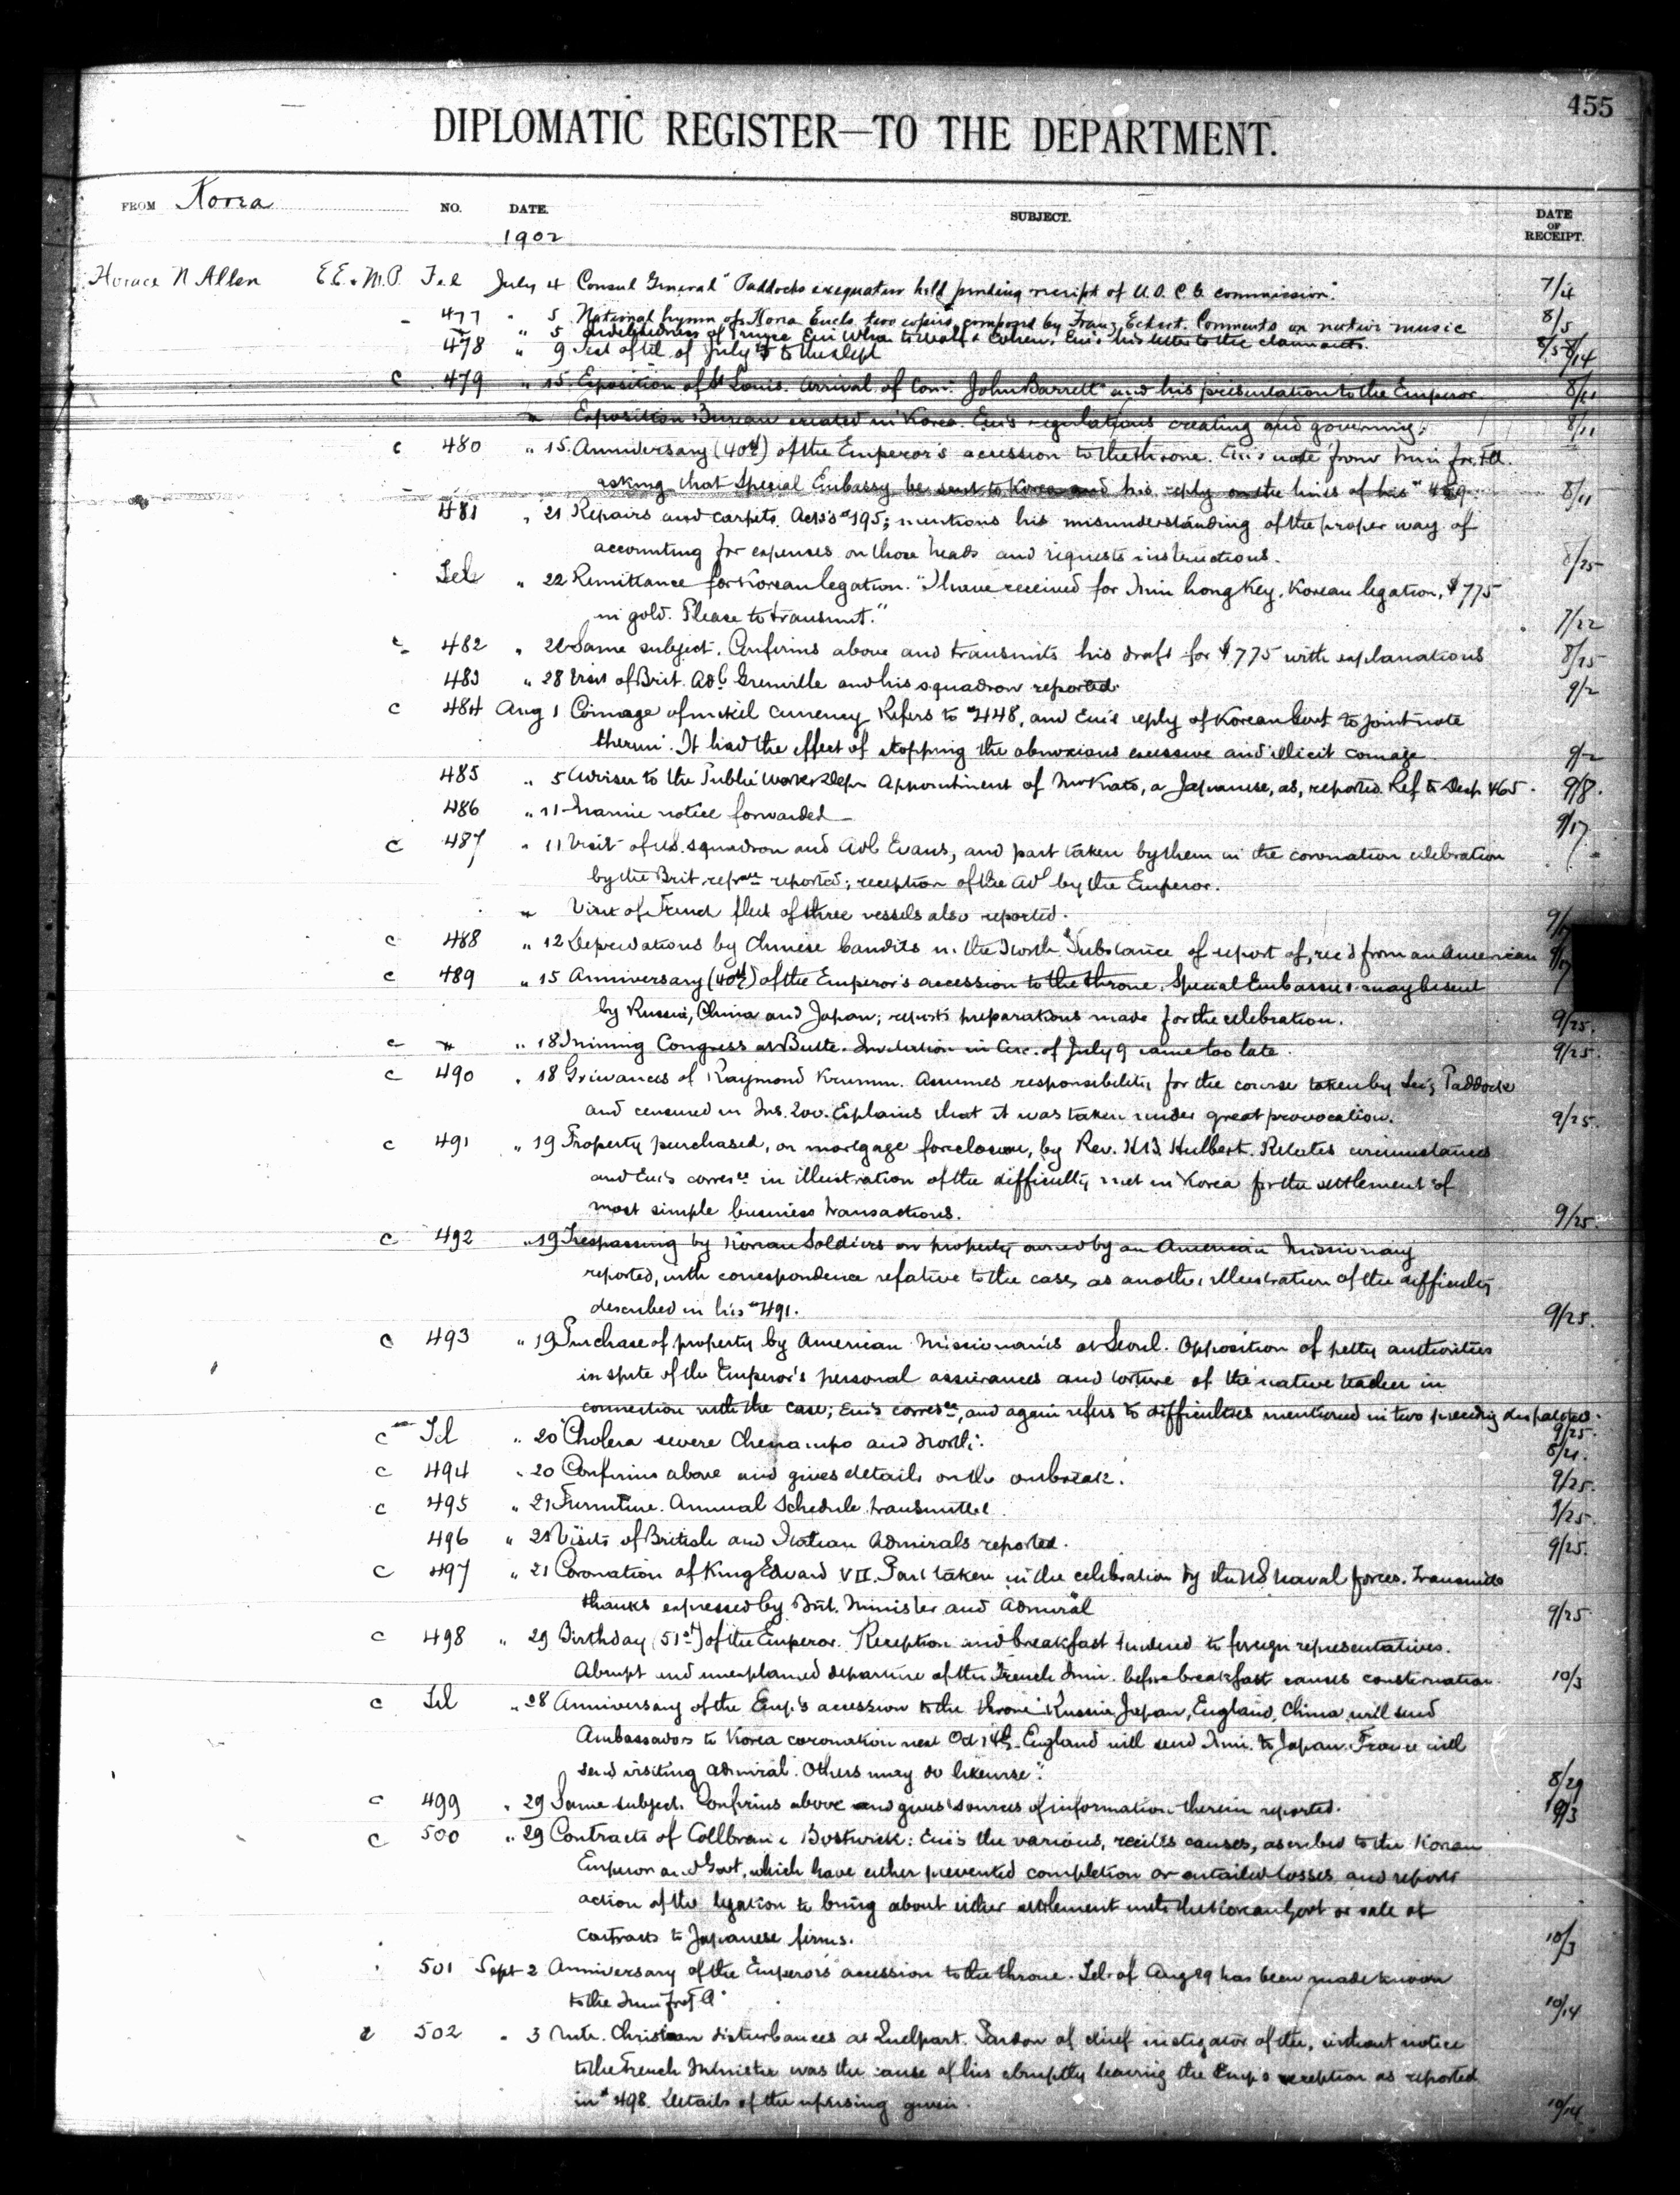 455
DIPLOMATIC REGISTER—TO THE DEPARTMENT.
FROM Korea NO. DATE. SUBJECT. DATE OF RECEIPT.
1902
Horace N Allen E.E. & M.P. Tel July 4 Consul General "Paddocks exequatur held pending receipt of U.S. C G. commission". 7/4
477 " 5 National hymn of Korea Encls. two copies, composed by Franz Eckert. Comments on native music 8/5
" 5 Indebtedness of Prince Eui Wha to Wolf & Cohen. Enc's his letter to the claimants. 8/5
478 " 9 Text of tel. of July 4 to the Dept 8/14
c 479 " 15. Exposition of St Louis. Arrival of Com'r John Barrett and his presentation to the Emperor. 8/11
" Exposition Bureau created in Korea. Enc's regulations creating and governing. 8/11
c 480 " 15. Anniversary (40th) of the Emperor's accession to the throne. Enc's note from Min for. Aff.
asking that Special Embassy be sent to Korea and his reply on the lines of his # 459. 8/11
481 " 21 Repairs and carpets. Ack's #195; mentions his misunderstanding of the proper way of
accounting for expenses on those heads and requests instructions. 8/25
Tel " 22 Remittance for Korean legation. "I have received for Min hong Key, Korean legation, $775
in gold. Please to transmit." 7/22
c 482 " 22 Same subject. Confirms above and transmits his draft for $775 with explanations 8/25
483 " 28 Visit of Brit. Adl Grenville and his squadron reported. 9/2
c 484 Aug 1 Coinage of nickel currency. Refers to #448, and Enc's reply of Korean Govt to joint note
therein. It had the effect of stopping the obnoxious excessive and illicit coinage 9/2
485 " 5 Adviser to the Public Works Dept Appointment of Mr Kato, a Japanese, as, reported. Ref to Desp 465. 9/8.
486 " 11 Marine notice forwarded 9/17
c 487 " 11 Visit of U.S. squadron and Adl Evans, and part taken by them in the coronation celebration
by the Brit. repve reported; reception of the Adl by the Emperor.
" Visit of French fleet of three vessels also reported. 9/17
c 488 " 12 Depredations by Chinese bandits in the North. Substance of report of, rec'd from an American 9/17
c 489 " 15 Anniversary (40th) of the Emperor's accession to the throne. Special Embassies may be sent
by Russia, China and Japan; reports preparations made for the celebration. 9/25.
c " " 18 Mining Congress at Butte. Invitation in Circ. of July 9 came too late. 9/25.
c 490 " 18 Grievances of Raymond Krumm. Assumes responsibility for the course taken by Paddock
and censured in Ins. 200. Explains that it was taken under great provocation. 9/25.
c 491 " 19 Property purchased, on mortgage foreclosure, by Rev. H.B. Hulbert. Relates circumstances
and Enc's corresce in illustration of the difficulty met in Korea for the settlement of
most simple business transactions. 9/25.
c 492 " 19 Trespassing by Korean Soldiers on property owned by an American Missionary
reported, with correspondence relative to the case, as another illustration of the difficulty
described in his #491. 9/25.
c 493 " 19 Purchase of property by American Missionaries at Seoul. Opposition of petty authorities
in spite of the Emperor's personal assurances and torture of the native teacher in
connection with the case; enc's corresce, and again refers to difficulties mentioned in two preceding despatches. 9/25.
c Tel " 20 "Cholera severe Chenampo and North". 8/21.
c 494 " 20 Confirms above and gives details on the outbreak. 9/25.
c 495 " 21 Furniture. Annual Schedule transmitted 9/25.
496 " 21 Visits of British and Italian Admirals reported. 9/25.
c 497 " 21 Coronation of King Edward VII. Part taken in the celebration by the US naval forces. Transmits
thanks expressed by Brit. Minister and Admiral 9/25
c 498 " 29 Birthday (51st) of the Emperor. Reception and breakfast tendered to foreign representatives.
Abrupt and unexplained departure of the French Min. before breakfast causes consternation. 10/3
c Tel " 28 Anniversary of the Emp's accession to the throne "Russia, Japan, England, China will send
Ambassadors to Korea coronation next Oct 18th. England will send Min. to Japan. France will
send visiting admiral. Others may do likewise". 8/29
c 499 " 29 Same subject. Confirms above and gives sources of information therein reported. 10/3
c 500 " 29 Contracts of Collbran & Bostwick: Enc's the various, recites causes, ascribed to the Korean
Emperor and Govt, which have either prevented completion or entailed losses and reports
action of the legation to bring about either settlement with the Korean Govt or sale of
contracts to Japanese firms. 10/3
501 Sept 2 Anniversary of the Emperor's accession to the throne. Tel. of Aug 29 has been made known
to the Min for A 10/14
c 502 " 3 Anti-Christian disturbances at Quelpart. Pardon of chief instigator of the, without notice
to the French Minister was the cause of his abruptly leaving the Emp's reception as reported
in # 498. Details of the uprising given. 10/14